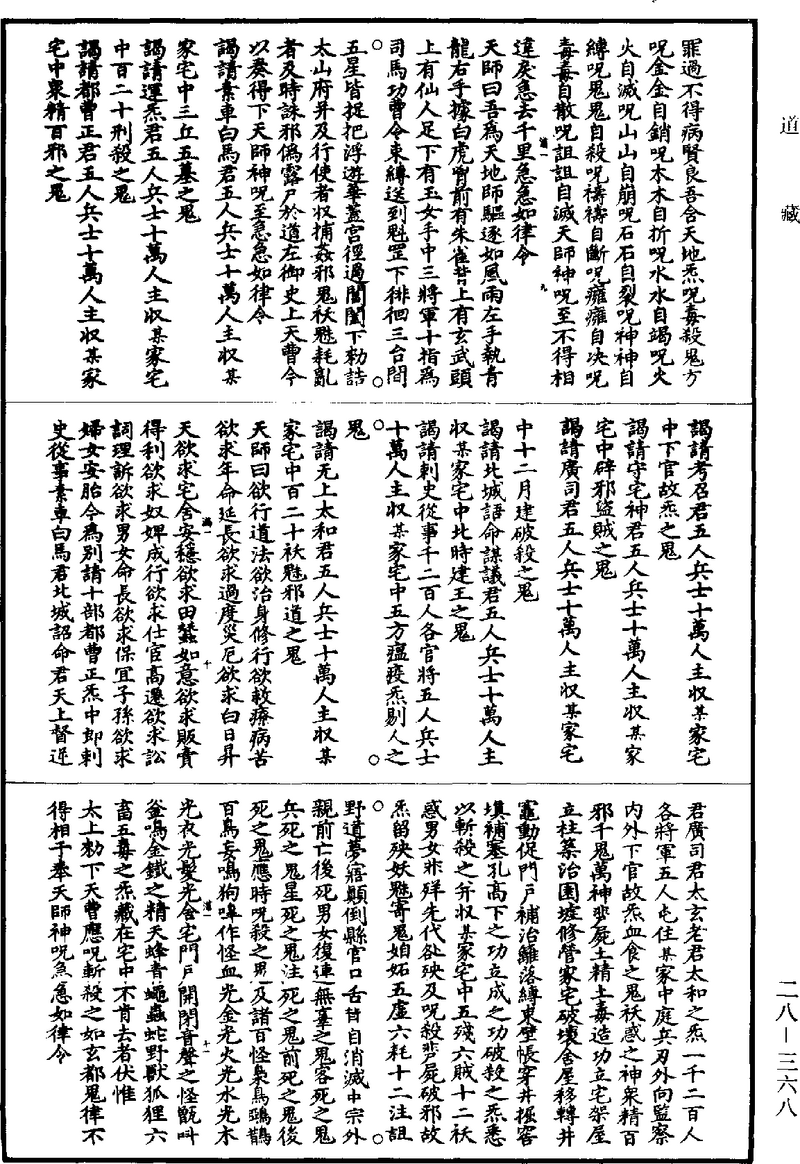 道藏
罪過不得病賢良吾含天地炁呪毒殺鬼方
呪金金自銷呪木木自折呪水水自竭呪火
火自滅呪山山自崩呪石石自裂呪神神自
縛呪鬼鬼自殺呪禱禱自斷呪癰癰自决呪
毒毒自散呪詛詛自滅天師神呪至不得相
違戾急去千里急急如律令
天師曰吾為天地師驅逐如風雨左手執青
龍右手據白虎胷前有朱雀背上有玄武頭
上有仙人足下有玉女手中三將軍十指為
司馬功曹令束縛送到魁罡下徘徊三台間
五星皆捉把浮遊華蓋宮徑過閶闔下勑詰
太山府并及行使者收捕姦邪鬼祅魅耗亂
者及時誅邪偽露尸於道左御史上天曹今
以癸得下天師神呪至急急如律令
謁請素車白馬君五人兵士十萬人主收某
家宅中三丘五墓之鬼
謁請運炁君五人兵士十萬人主收某家宅
中百二十刑殺之鬼
謁請都曹正君五人兵士十萬人主收某家
宅中衆精百邪之鬼
謁請考召君五人兵士十萬人主收某家宅
中下官故炁之鬼
謁請守宅神君五人兵士十萬人主收某家
宅中辟邪盜賊之鬼
謁請廣司君五人兵士十萬人主收某家宅
中十二月建破殺之鬼
謁請北城語命謀議君五人兵士十萬人主
收某家宅中北時建王之鬼
謁請刺史從事千二百人各官將五人兵士
十萬人主收某家宅中五方瘟疫炁剔人之
鬼
謁請无上太和君五人兵士十萬人主收某
家宅中百二十祅魅邪道之鬼
天師曰欲行道法欲治身修行欲救療病苦
欲求年命延長欲求過度災厄欲求白日昇
天欲求宅舍安穩欲求田蠶如意欲求販賣
得利欲求奴婢成行欲求仕官高遷欲求訟
詞理訴欲求男女命長欲求保宜子孫欲求
婦女安胎今為別請十部都曹正炁中郎刺
史從事素車白馬君北城詔命君天上督逆
君廣司君太玄老君太和之炁一千二百人
各將軍五人屯住某家中庭兵刃外向監察
內外下官故炁血食之鬼祅惑之神衆精百
邪千鬼萬神飛屍土精土毒造功立宅架屋
立柱築治園墟修營家宅破壞舍屋移轉井
竈動促門戶補治籬落縛束壁帳穿井掘窖
填補塞孔高下之功立成之功破殺之炁悉
以斬殺之并收某家宅中五殘六賊十二祅
惑男女非殍先代咎殃及呪殺飛屍破邪故
炁留殃妖魅寄鬼妲妬五虛六耗十二注詛
野道夢寤顛倒縣官口舌皆自消滅中宗外
親前亡後死男女復連無辜之鬼客死之鬼
兵死之鬼星死之鬼注死之鬼前死之鬼後
死之鬼應時呪殺之鬼及諸百怪梟鳥鵶鵲
百鳥妄鳴狗嘷作怪血光金光火光水光木
光衣光髮光舍宅門戶開閉音聲之怪甑叫
釜鳴金鐵之精天蜂青蠅蟲蛇野獸狐狸六
畜五毒之炁藏在宅中不肯去者伏惟
太上勑下天曹應呪斬殺之如玄都鬼律不
得相干奉天師神呪急急如律令
二八—三六八